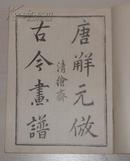 唐解元倣
清繪齋
古今畫譜